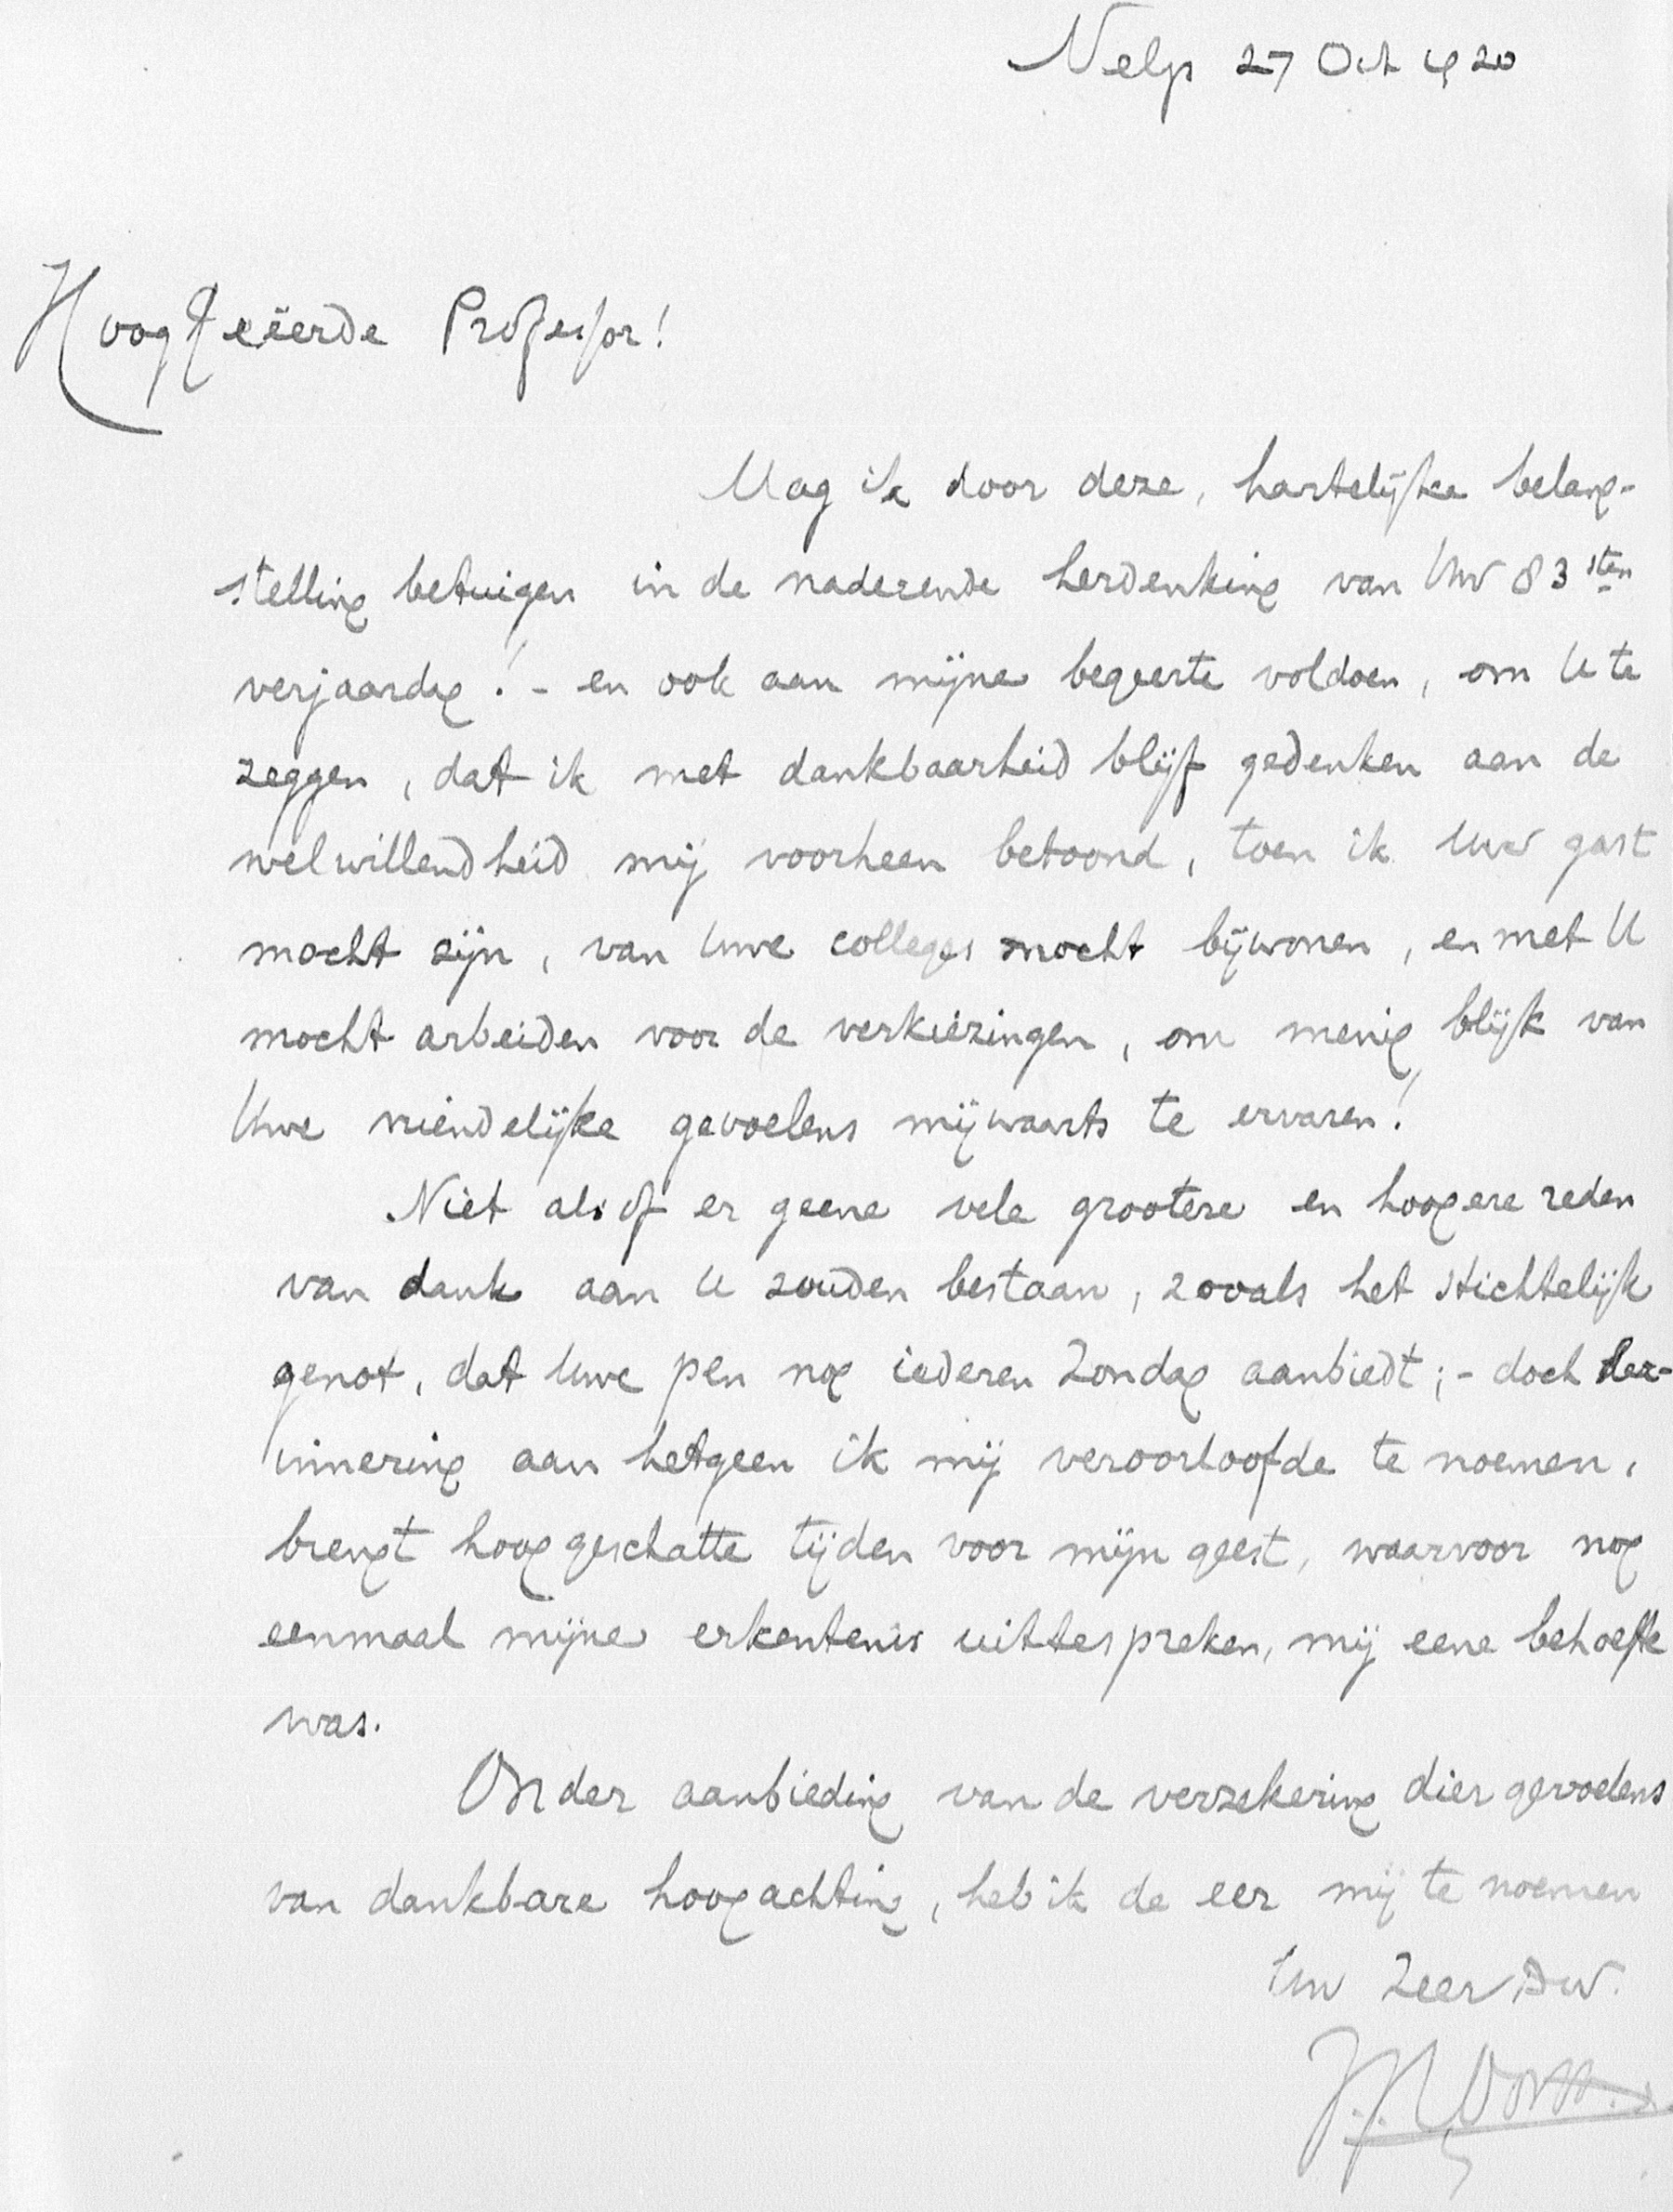 Velp 27 Oct 1920
Hooggeëerde Professor!
Mag ik door deze, hartelijke belang-
stelling betuigen in de naderende herdenking van Uw 83sten
verjaardag! - en ook aan mijne begeerte voldoen, om U te
zeggen, dat ik met dankbaarheid blijf gedenken aan de
welwillendheid mij voorheen betoond, toen ik Uw gast
mocht zijn, van Uwe colleges mocht bijwonen, en met U
mocht arbeiden voor de verkiezingen, om menig blijk van
Uwe vriendelijke gevoelens mijwaarts te ervaren!
Niet alsof er geene vele grootere en hoogere reden
van dank aan U zouden bestaan, zooals het stichtelijk
genot, dat Uwe pen nog iederen Zondag aanbiedt; - doch her-
innering aan hetgeen ik mij veroorloofde te noemen,
brengt hooggeschatte tijden voor mijn geest, waarvoor nog
eenmaal mijne erkentenis uittespreken, mij eene behoefte
was.
Onder aanbieding van de verzekering dier gevoelens
van dankbare hoogachting, heb ik de eer mij te noemen
Uw Zeer Dw.